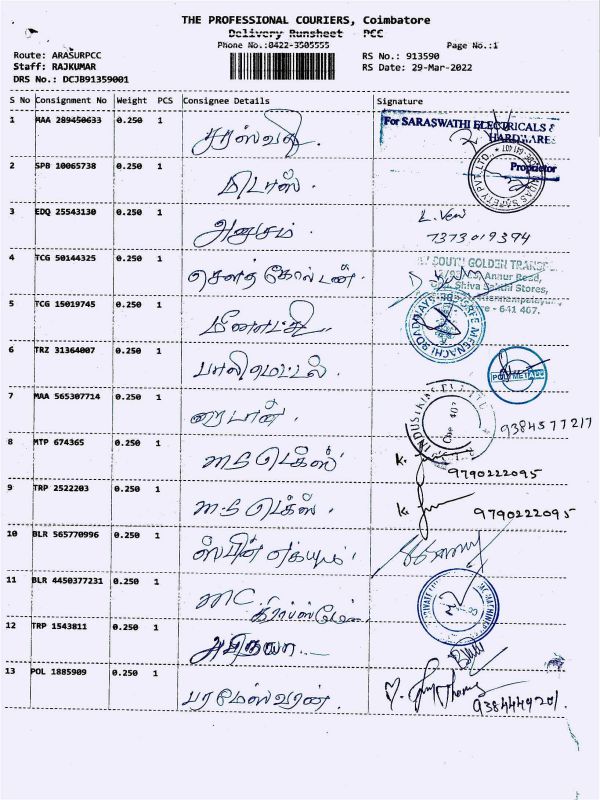 THE PROFESSIONAL COURIERS, Coimbatore
Delivery Runsheet PCC
Phone No.:0422-3505555 Page No.:1
Route: ARASURPCC RS No.: 913590
Staff: RAJKUMAR RS Date: 29-Mar-2022
DRS No.: DCJB91359001
S No Consignment No Weight PCS Consignee Details Signature
1 MAA 289450633 0.250 1 சரஸ்வதி
For SARASWATHI ELECTRICALS &
HARDWARES
Proprietor
2 SPB 10065738 0.250 1 மிடாஸ்.
3 EDQ 25543130 0.250 1 அனுசம்
7373019394
4 TCG 50144325 0.250 1 சௌத் கோல்டன்.
SOUTH GOLDEN TRANSP
Annur Road,
Shiva Sakthi Stores,
- 641 407.
5 TCG 15019745 0.250 1 மீனாட்சி.
6 TRZ 31364007 0.250 1 பாலிமெட்டல்.
POLYMETALS
7 MAA 565307714 0.250 1
9384577217
8 MTP 674365 0.250 1 டெக்ஸ்
K.
9790222095
9 TRP 2522203 0.250 1 டெக்ஸ்.
9790222095
10 BLR 565770996 0.250 1 ஸ்பின்
11 BLR 4450377231 0.250 1
12 TRP 1543811 0.250 1
13 POL 1885909 0.250 1 பரமேஸ்வரன்.
9384449201.